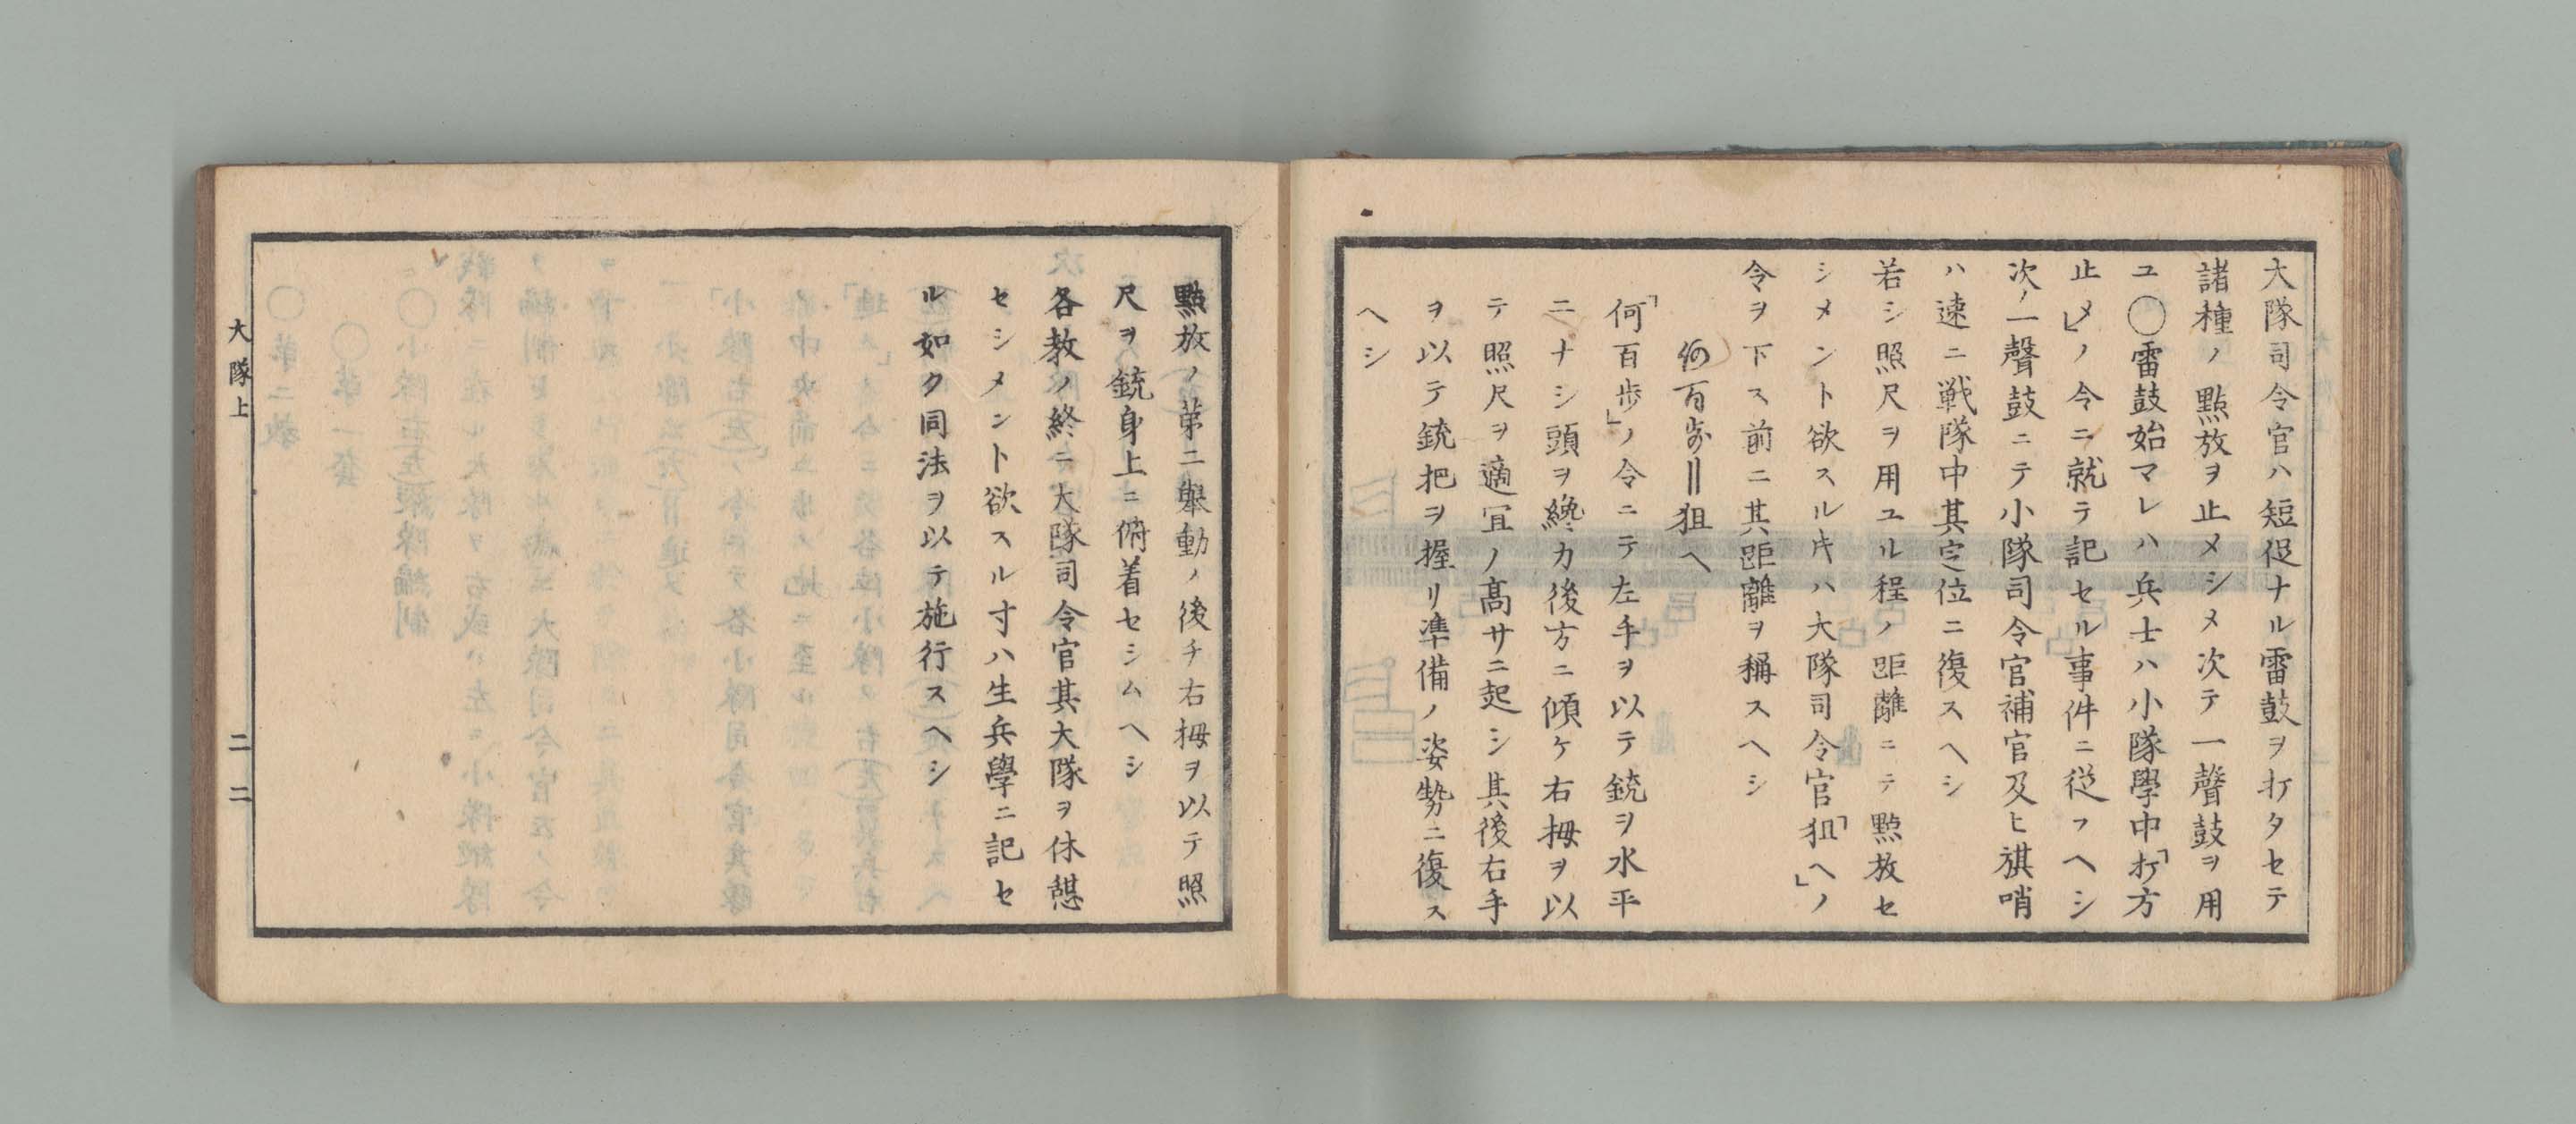 大隊司令官ハ短促ナル雷鼓ヲ打タセテ
諸種ノ㸃放ヲ止メシメ次テ一聲鼓ヲ用
ユ〇雷鼓始マレハ兵士ハ小隊學中「打方
止メ」ノ令ニ就テ記セル事件ニ従フヘシ
次ノ一聲鼓ニテ小隊司令官補官及ヒ旗哨
ハ速ニ戦隊中其定位ニ復スヘシ
若シ照尺ヲ用ユル程ノ距離ニテ㸃放セ
シメント欲スル𪜈ハ大隊司令官「狙ヘ」ノ
令ヲ下ス前ニ其距離ヲ稱スヘシ
何百歩‖狙ヘ
「何百歩」ノ令ニテ左手ヲ以テ銃ヲ水平
ニナシ頭ヲ纔カ後方ニ傾ケ右拇ヲ以
テ照尺ヲ適宜ノ髙サニ起シ其後右手
ヲ以テ銃把ヲ握リ準備ノ姿勢ニ復ス
ヘシ
點放ノ苐二舉動ノ後チ右拇ヲ以テ照
尺ヲ銃身上ニ俯着セシムヘシ
各教ノ終ニ大隊司令官其大隊ヲ休憩
セシメント欲スル寸ハ生兵學ニ記セ
ル如ク同法ヲ以テ施行スヘシ
大隊上
二二